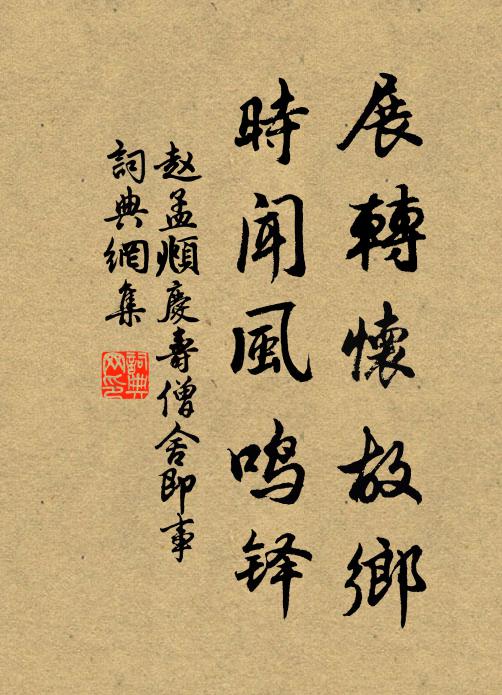 展轉懷故鄉
時聞風鳴铎
赵孟頫慶壽僧舍即事
詞典網集
詞典网印